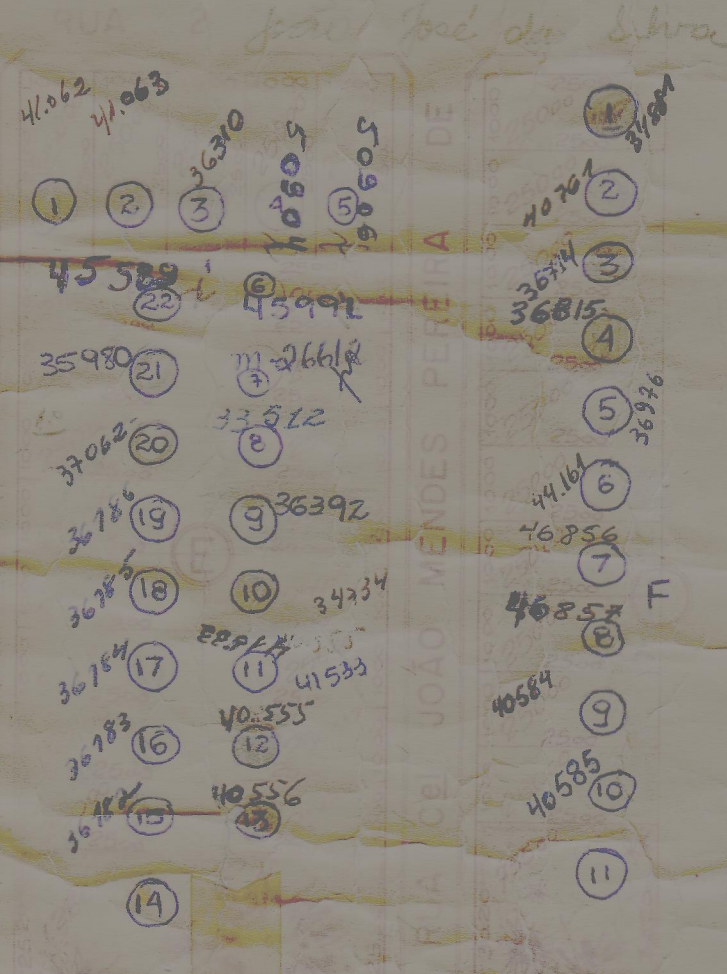 João José da Silva
41.062 41.063 36310 50904 50906
1 2 3 4 5
45589 22
6 45992
35980 21
7
37062- 20
33512 8
36786 19
9 36392
36785 18
10 34734
36784 17
11 41533
36783 16
40.555 12
36782 15
40556 13
14
RUA Cel JOÃO MENDES PEREIRA DE
E
1 34881
40761 2
36714 3
36815- 4
5 36976
44.161 6
46856 7
F
46857 8
40584 9
40585 10
11